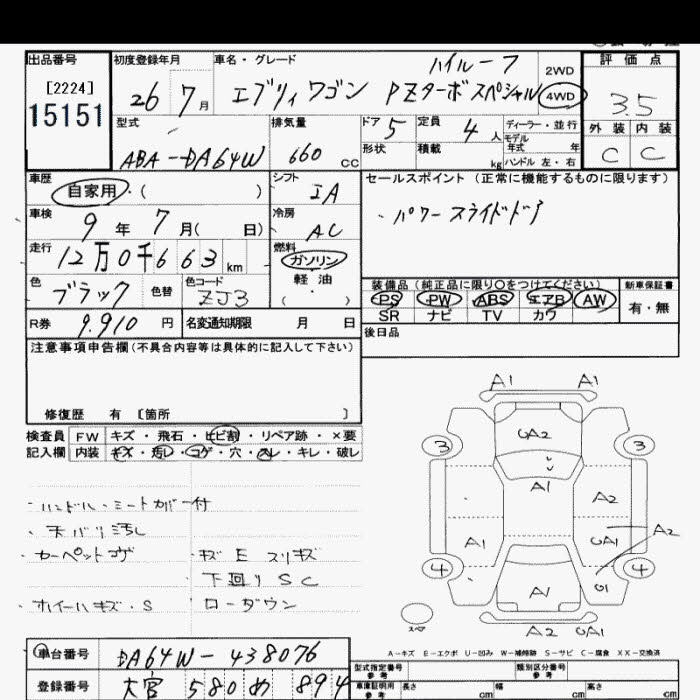 出品番号 初度登録年月 車名・グレード 評価点
[2224] 15151
26 7月 エブリィワゴン ハイルーフ PZターボスペシャル 2WD 4WD 3.5
型式 排気量 ドア 5 定員 4人 ディーラー・並行 外装 内装
ABA-DA64W 660 cc 形状 積載 kg モデル年式 年 ハンドル 左・右 C C
車歴 自家用・( ) シフト IA セールスポイント(正常に機能するものに限ります)
・パワースライドドア
車検 9年 7月( 日) 冷房 AC
走行 12万0千663km 燃料 ガソリン 軽油 ・( )
色 ブラック 色替 色コード ZJ3
装備品(純正品に限り○をつけてください) 新車保証書
PS PW ABS エアB AW 有・無
SR ナビ TV カワ
R券 9.910円 名変通知期限 月 日
後日品
注意事項申告欄(不具合内容等は具体的に記入して下さい)
修復歴 有 〔箇所 〕
検査員 FW キズ・飛石・ヒビ割・リペア跡・×要
記入欄 内装 キズ・汚レ・コゲ・穴・スレ・キレ・破レ
・ハンドル・シートカバー付
・天バリ汚レ
・カーペットコゲ ・キズ E スリキズ
下回りSC
・ホイールキズ・S ローダウン
A1 A1
UA2
3 3
A1 A2
A1 UA1 A2
4 4
A1 U1
スペア
A2 UA1
A-キズ E-エクボ U-凹み W-補修跡 S-サビ C-腐食 XX-交換済
車台番号 DA64W-438076
登録番号 大宮 580 め 894
型式指定番号 参考 類別区分番号 参考
車庫証明用 参考 長さ cm 幅 cm 高さ cm